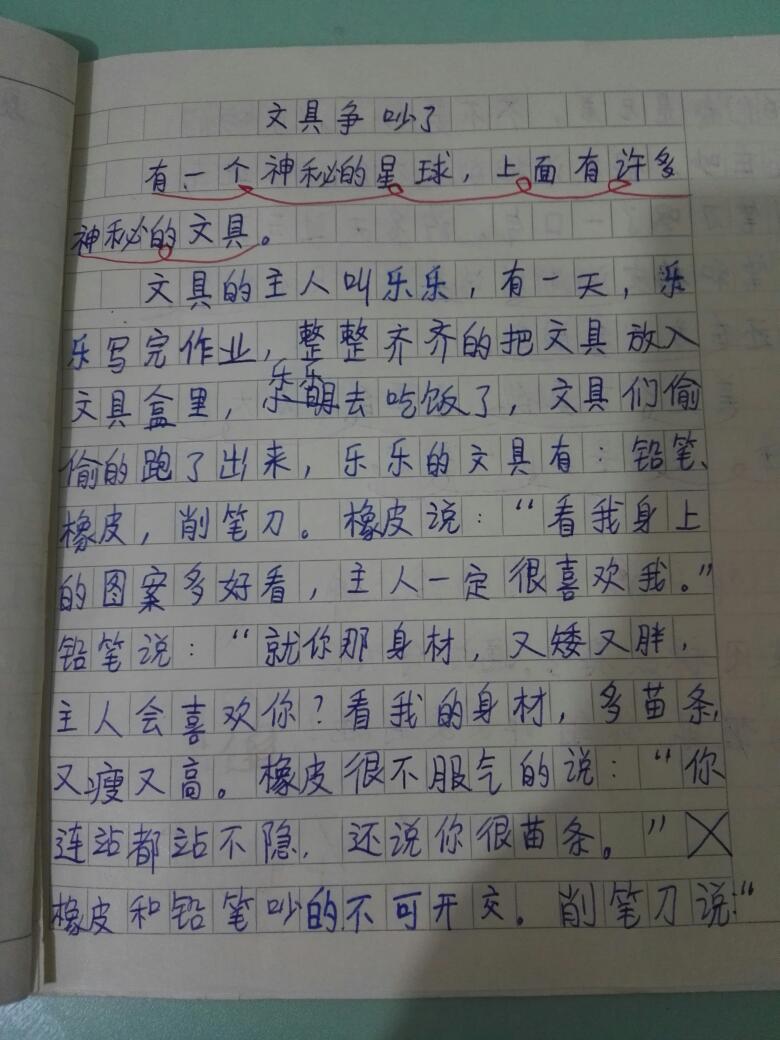 文具争吵了
有一个神秘的星球，上面有许多
神秘的文具。
文具的主人叫乐乐，有一天，乐
乐写完作业，整整齐齐的把文具放入
文具盒里，乐乐去吃饭了，文具们偷
偷的跑了出来，乐乐的文具有：铅笔、
橡皮，削笔刀。橡皮说：“看我身上
的图案多好看，主人一定很喜欢我。”
铅笔说：“就你那身材，又矮又胖，
主人会喜欢你？看我的身材，多苗条，
又瘦又高。橡皮很不服气的说：“你
连站都站不隐，还说你很苗条。”
橡皮和铅笔吵的不可开交。削笔刀说：“